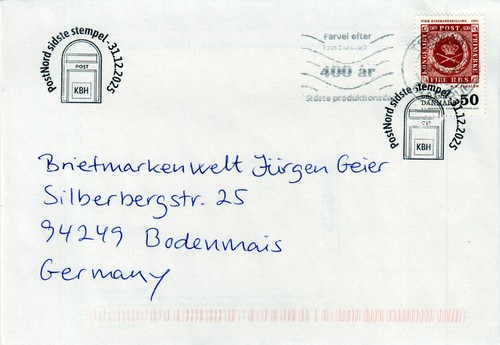 PostNord sidste stempel - 31.12.2025
POST
KBH
Farvel efter
400 år
Sidste produktionsdag
KGL POST FRM
FIRE R.B.S.
DANMARK 50
PostNord sidste stempel - 31.12.2025
KBH
Briefmarkenwelt Jürgen Geier
Silberbergstr. 25
94249 Bodenmais
Germany